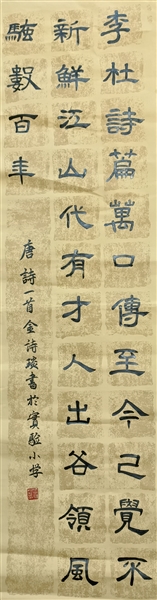 李杜詩篇萬口傳至今已覺不
新鮮江山代有才人出各領風
騷數百年
唐詩一首金詩琰書於實驗小学